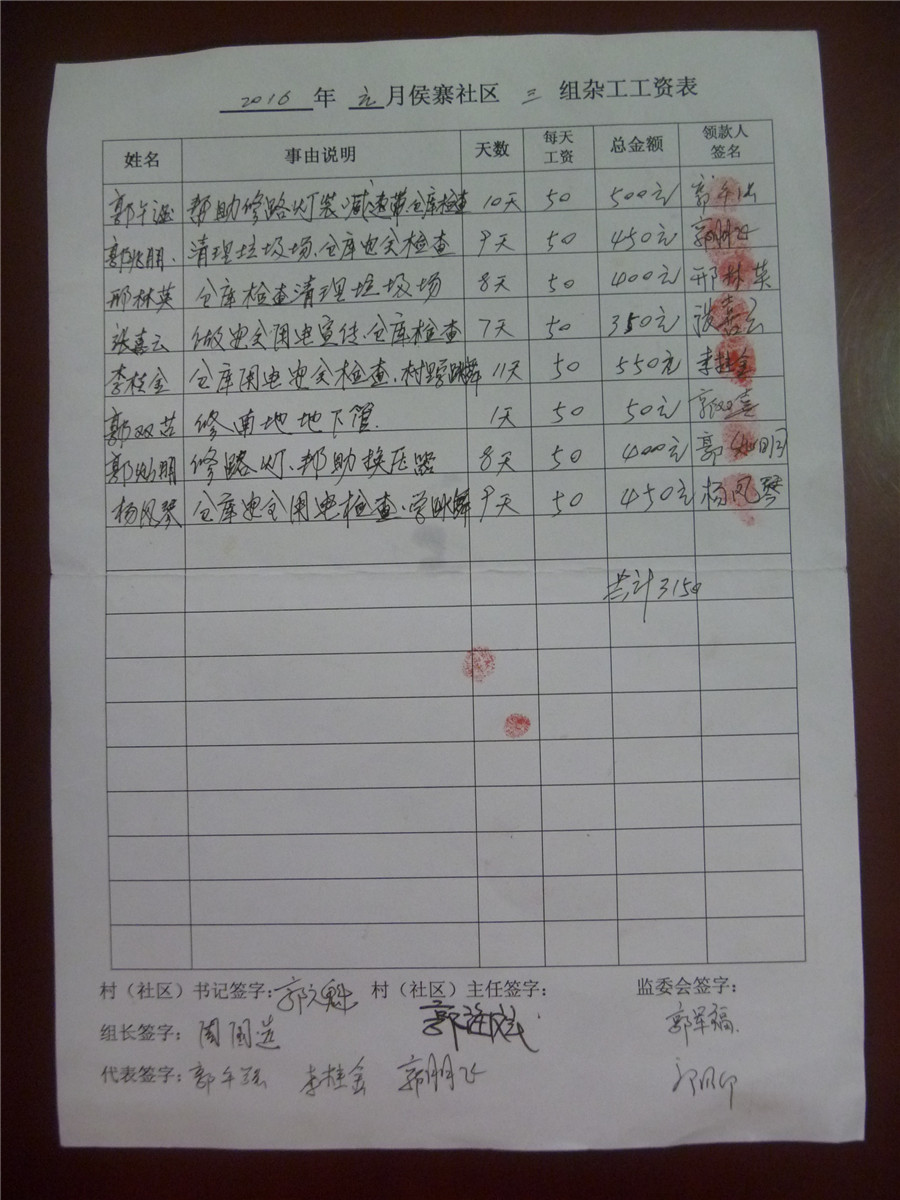 2016年元月侯寨社区三组杂工工资表
姓名 事由说明 天数 每天工资 总金额 领款人签名
郭午 帮助修路灯装减速带仓库检查 10天 50 500元 郭午
郭 朋 清理垃圾场、仓库安全检查 9天 50 450元 郭朋飞
邢林英 仓库检查清理垃圾场 8天 50 400元 邢林英
张喜云 做安全用电宣传、仓库检查 7天 50 350元 张喜云
李桂金 仓库用电安全检查、村 跳舞 11天 50 550元 李桂金
郭双喜 修南地地下管. 1天 50 50元 郭双喜
郭 明 修路灯、帮助换压器 8天 50 400元 郭 明
杨凤琴 仓库安全用电检查、学跳舞 9天 50 450元 杨凤琴
共计3150
村（社区）书记签字：郭 魁 村（社区）主任签字：郭 监委会签字：
组长签字：周国选 郭军福
代表签字：郭午 李桂金 郭朋飞